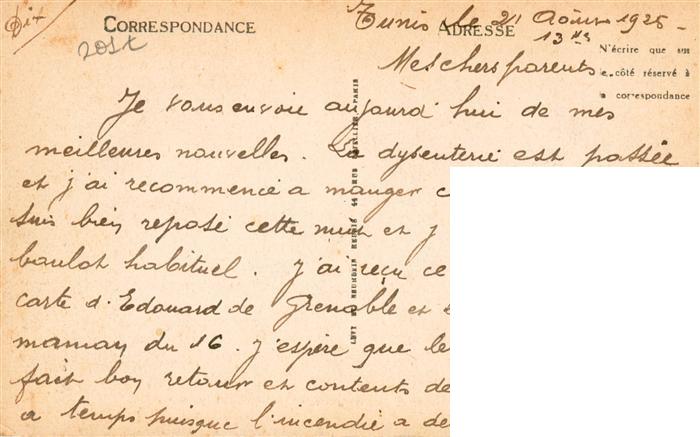 Dix
CORRESPONDANCE
ADRESSE
Tunis le 21 Août 1925
13 Hs
N'écrire que sur
le côté réservé à
la correspondance
Mes chers parents
Je vous envoie aujourd'hui de mes
meilleures nouvelles. La dysenterie est passée
et j'ai recommencé a manger c
suis bien reposé cette nuit et j
boulot habituel. J'ai reçu ce
carte d'Edouard de Grenoble et
maman du 16. J'espère que le
fait bon retour et contents de
a temps puisque l'incendie a de
LEVY ET NEURDEIN REUNIS 44 RUE LETELLIER PARIS